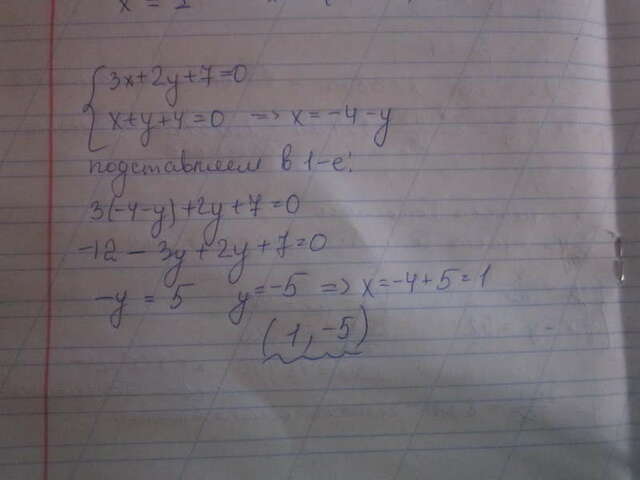 x = 1
3x+2y+7=0
x+y+4=0 => x=-4-y
подставляем в 1-е:
3(-4-y)+2y+7=0
-12-3y+2y+7=0
-y = 5 y=-5 => x=-4+5=1
(1,-5)